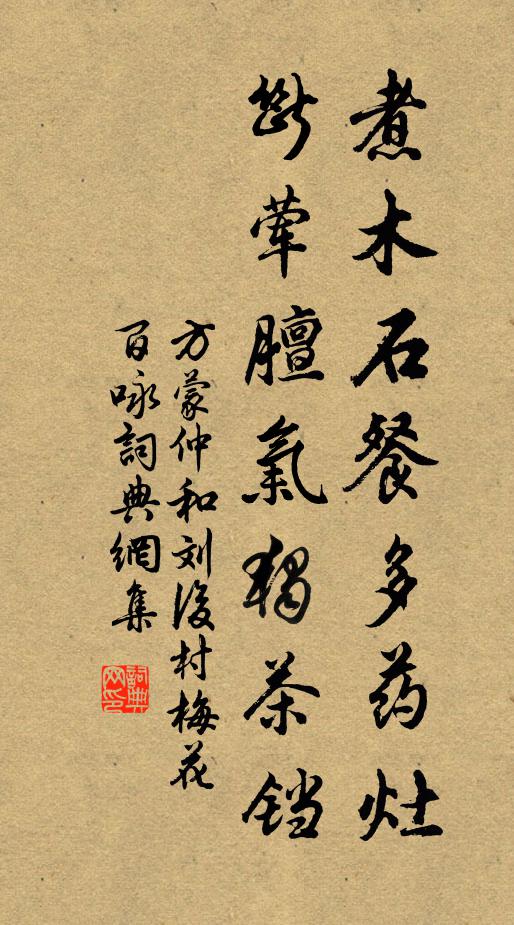 煮木石餐多药灶
断荤膻氣独茶铛
方蒙仲和刘後村梅花
百咏詞典網集
詞典網印